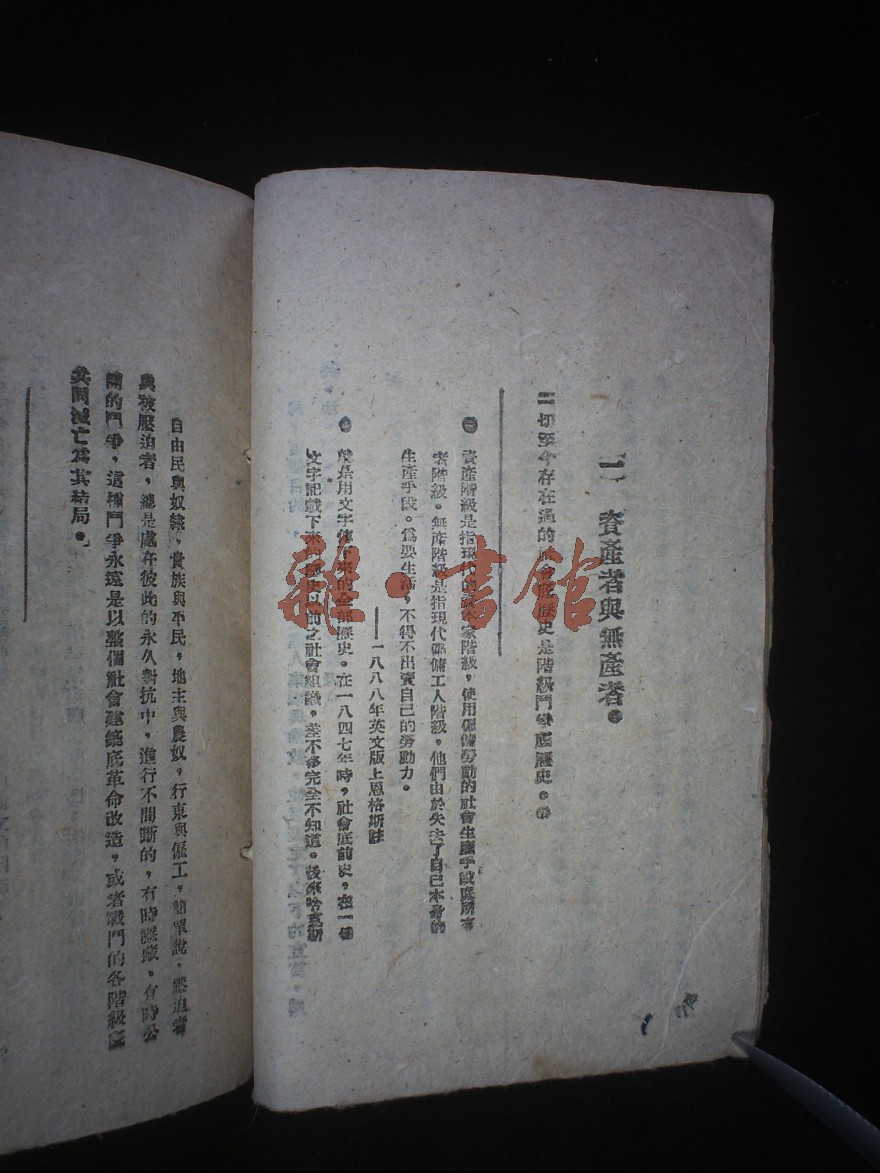 一 資產者與無產者。
一切至今存在過的社會底歷史是階級鬥爭底歷史。
資產階級是指現代的資本家階級,使用僱傭勞動的社會生產手段底所有
者階級。無產階級是指現代僱傭工人階級,他們由於失去了自己本身的
生產手段。爲要生活,不得不出賣自己的勞動力。
——一八八八年英文版上恩格斯註
是用文字傳下來的全部歷史。在一八四七年時,社會底前史,在一切
文字記載下來的歷史以前之社會組織,差不多完全不知道。後來哈克斯
自由民與奴隸,貴族與平民,地主與農奴,行東與僱工,簡單說,壓迫者
與被壓迫者,總是處在彼此的永久對抗中,進行不間斷的,有時隱藏、有時公
開的鬥爭,這種鬥爭永遠是以整個社會建築底革命改造,或者戰鬥的各階級底
共同滅亡爲其結局。
雜·書館